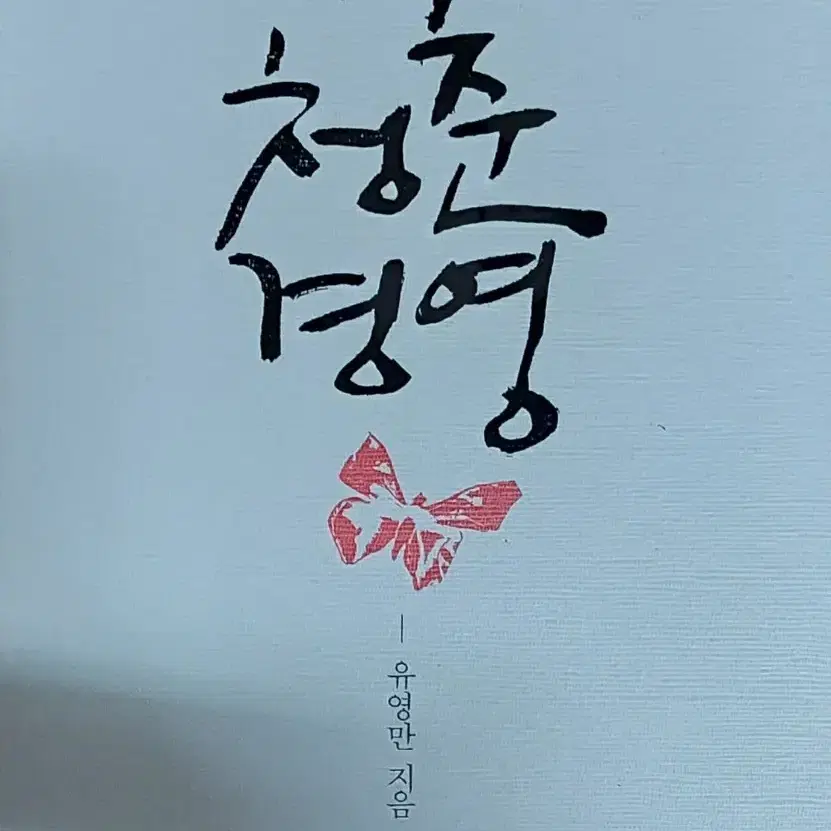 청춘
경영
유영만 지음